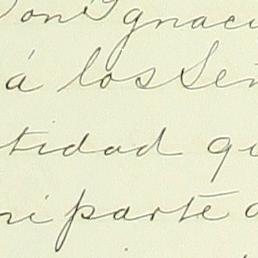 Don Ignaci
á los Señ
tidad qu
mi parte